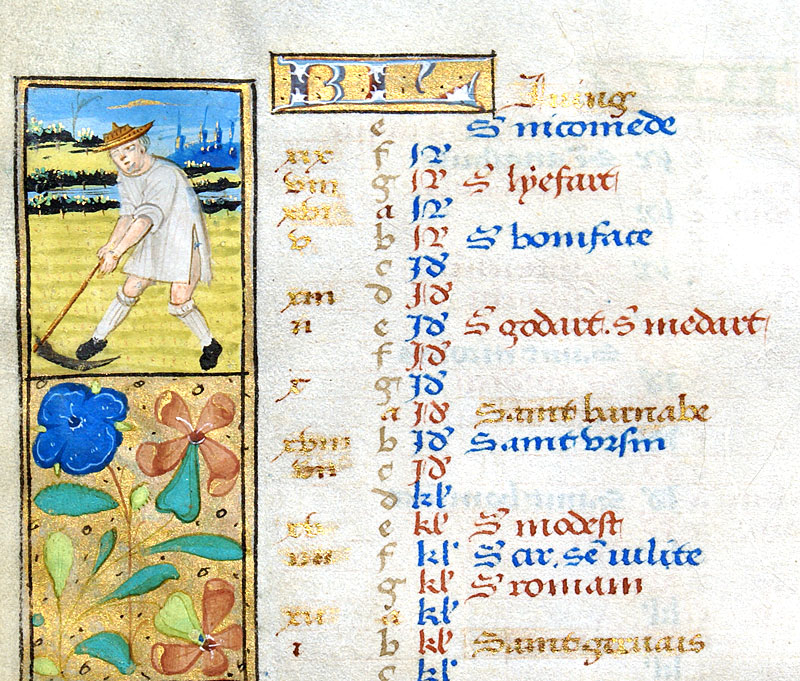 KL Juing
e S nicomede
xix f N
viii g N S lyefart
xvi a N
v b N S boniface
c Id
xiii d Id
ii e Id S godart. S medart
f Id
x g Id
a Id Saint barnabe
xviii b Id Saint ursin
vii c Id
d kl
xv e kl S modest
iiii f kl S cir. se iulite
g kl S romain
xii a kl
i b kl Saint geruais
c kl